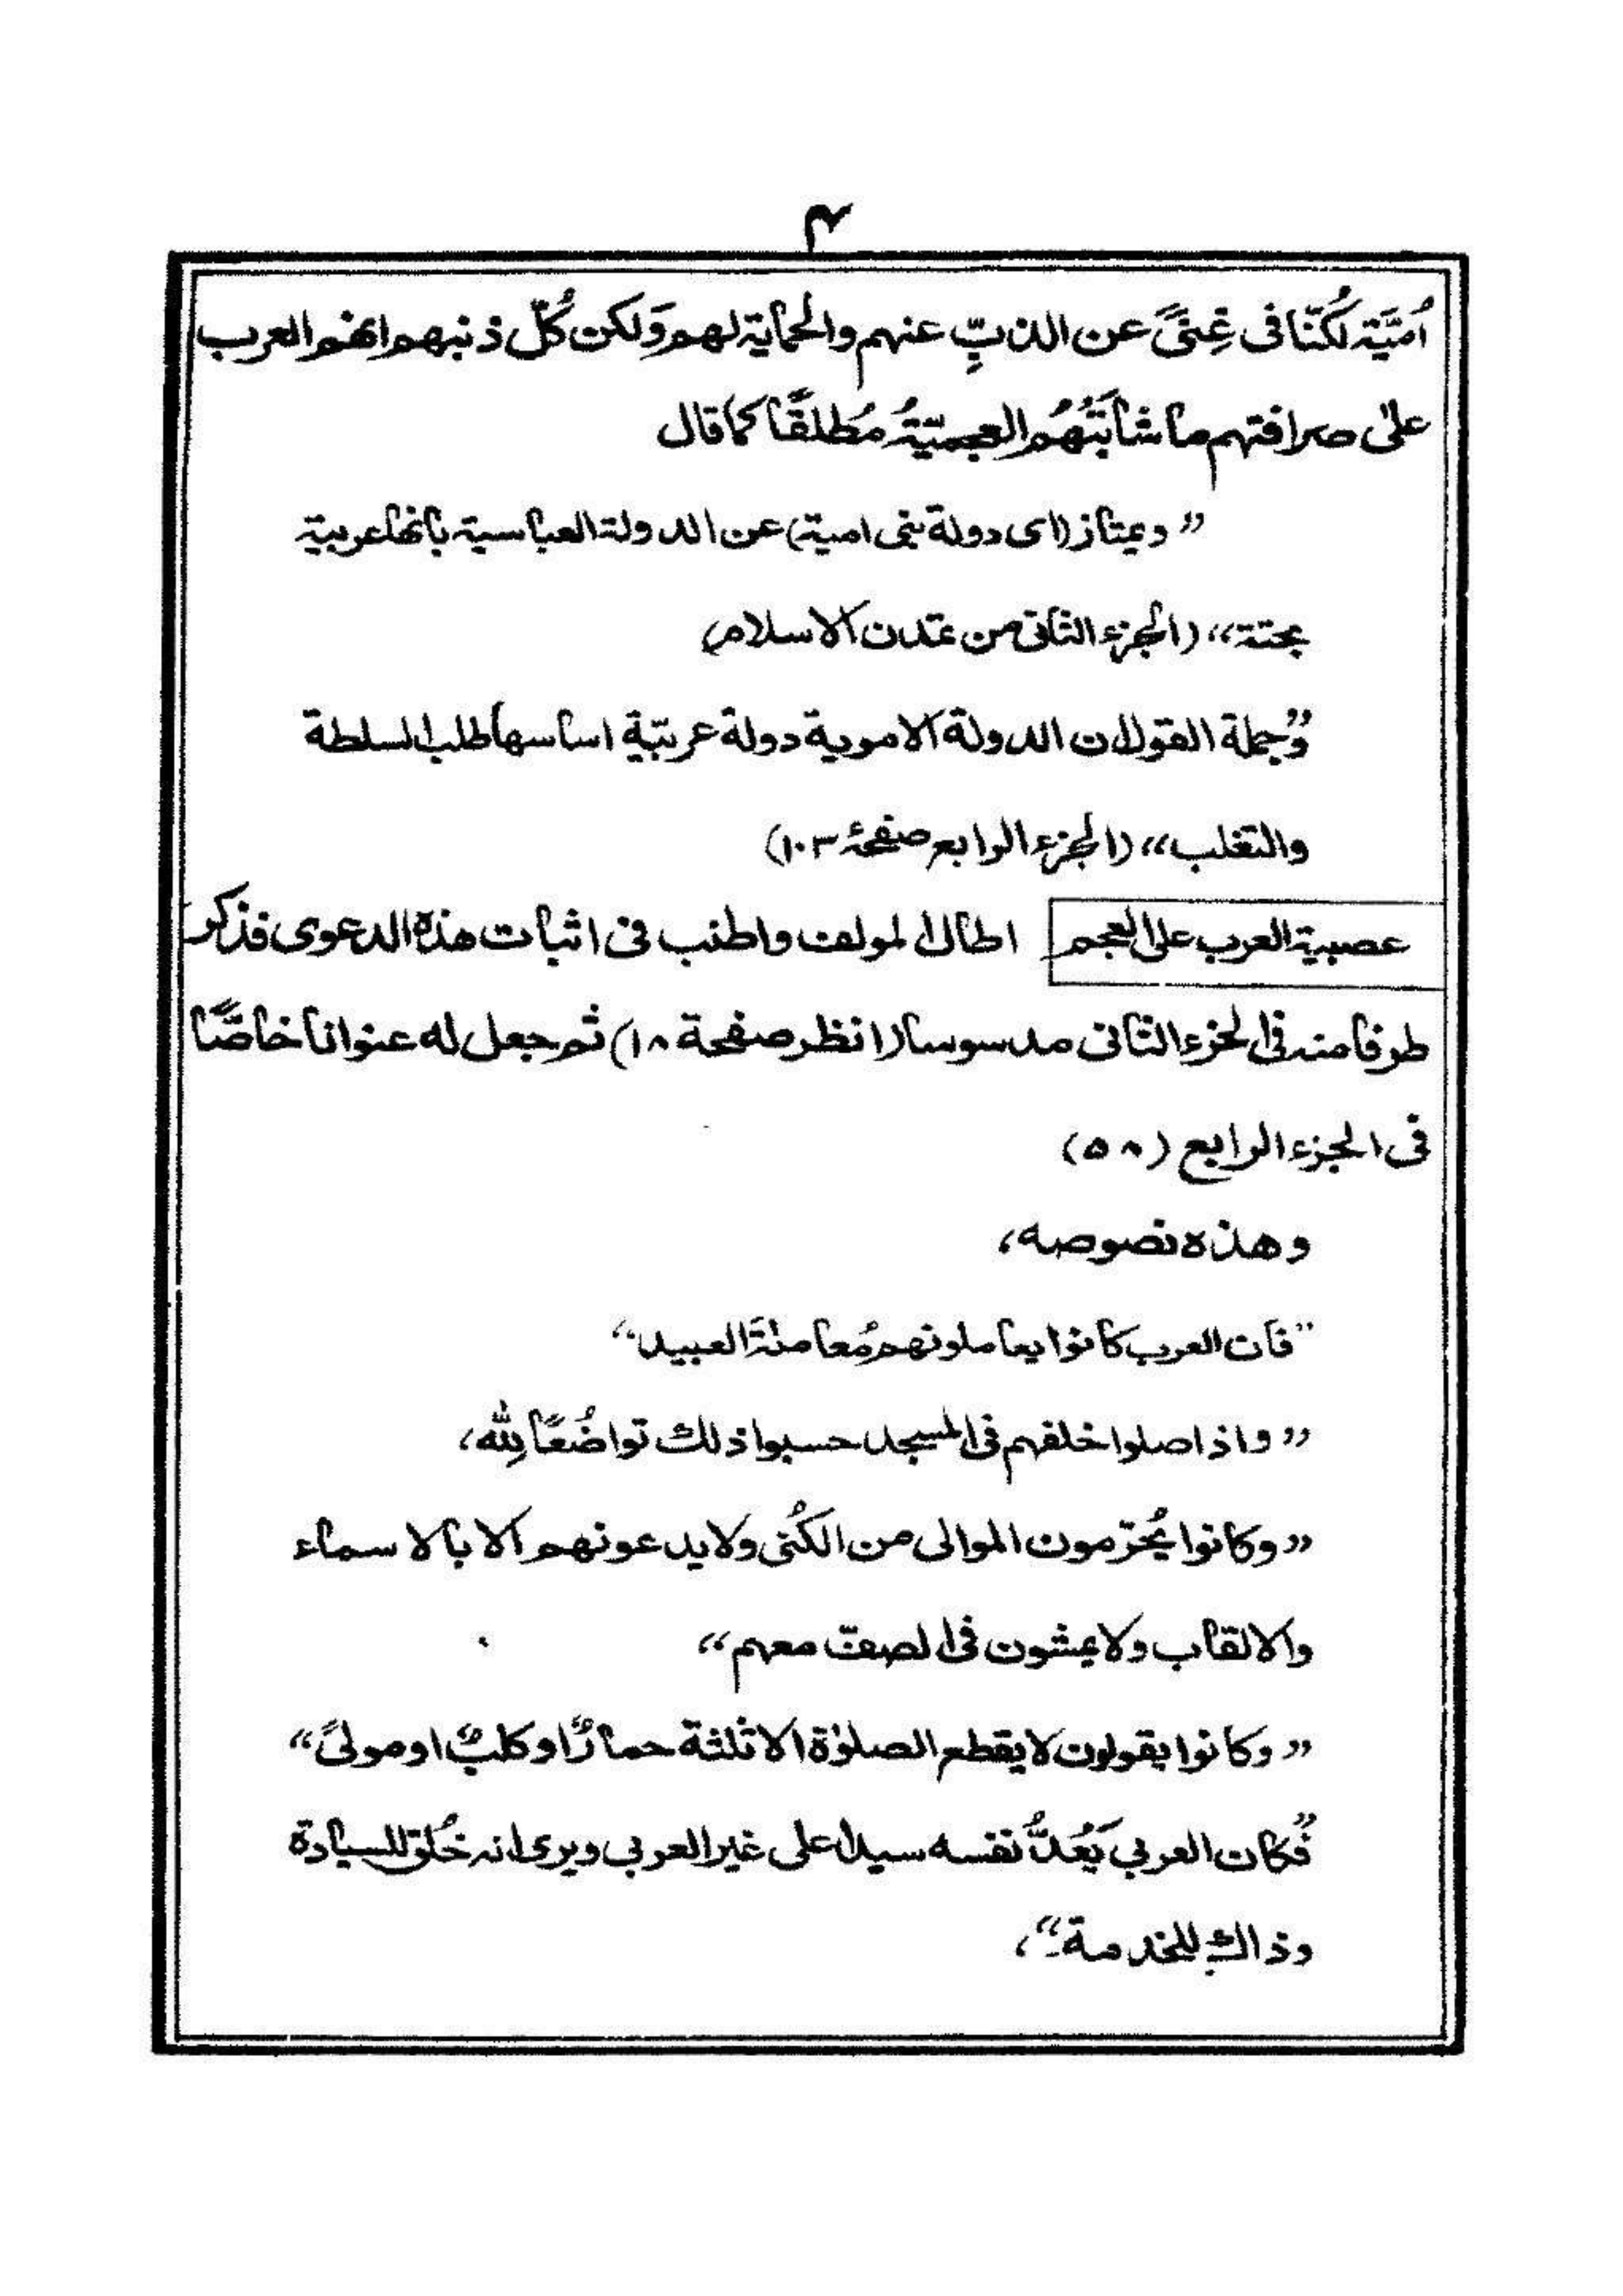 ۴
اُمَيَّة لكُنّا فى غِنىً عن الذبِّ عنهم والحماية لهم وَلكن كُلّ ذنبهم انهم العرب
علىٰ صرافتهم ما شابَتْهُم العجميّةُ مُطلقًا كما قال
”ويمتاز (اى دولة بنى امية) عن الدولة العباسية بانها عربية
بحتة“ (الجزء الثانى من تمدن الاسلام)
”وجملة القول ان الدولة الاموية دولة عربيّة اساسها طلب السلطة
والتغلب“ (الجزء الرابع صفحۂ ۱۰۳)
عصبية العرب على العجم اطال المولف واطنب فى اثبات هذه الدعوى فذكر
طرفا منه فى الجزء الثانى مدسوسا (انظر صفحة ۱۸) ثم جعل له عنوانا خاصًّا
فى الجزء الرابع (۵۸)
وهذه نصوصه،
”فان العرب كانوا يعاملونهم مُعاملةَ العبيد“
”واذا صلوا خلفهم فى المسجد حسبوا ذلك تواضُعًا لِله،
”وكانوا يُحرّمون الموالى من الكُنى ولا يدعونهم الا بالاسماء
والالقاب ولا يمشون فى الصف معهم“
”وكانوا يقولون لا يقطع الصلوٰة الا ثلثة حمارٌ او كلبٌ او مولىً“
”فكان العربي يَعُدُّ نفسه سيدا على غير العربي ويرى انه خُلق للسيادة
وذاك للخدمة“،